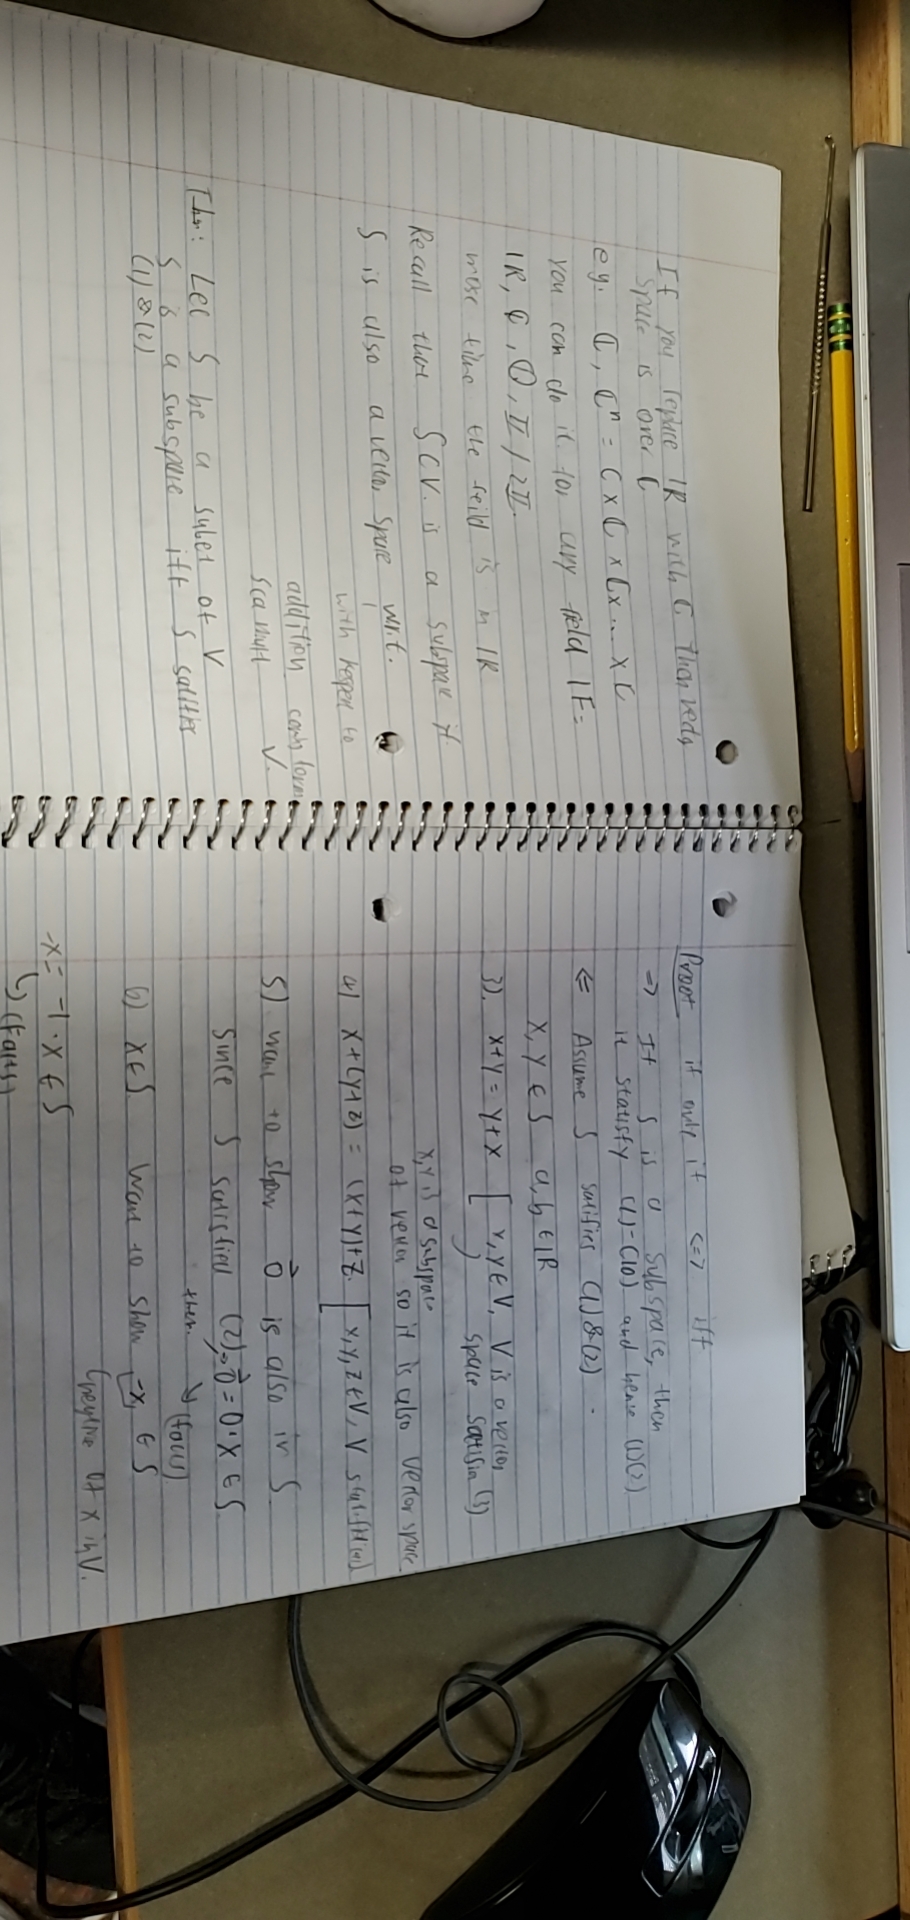 If you replace IR with ₵ then vecto
space is over ₵
eg. ₵, ₵ⁿ = ₵ x ₵ x ₵x... x ₵
you can do it for any field IF=
IR, ₵, ℚ, ℤ/2ℤ.
most time the feild is in IR
Recall that S⊂V. is a subspace if
S is also a vecto, space w.r.t.
with respect to
addition
sca mult V.
Thm: Let S be a subet of V
S is a subspace iff S satifies
(1) & (2)
Proof if only if <=> iff
=> If S is a subspace, then
it statisfy (1)-(10) and hence (1)(2)
<= Assume S satifies (1)&(2).
x, y ∈ S a, b ∈ IR
3). x+y = y+x [ x, y ∈ V, V is a vector
space (3)
x, y is a subspace
of vector so it is also vector space
4) x+(y+z) = (x+y)+z. [ x, y, z ∈ V, V
5) want to show 0⃗ is also in S
Since S satisfied (2), 0⃗ = 0·x ∈ S
then. ↘ (facts)
6) x ∈ S. Want to show -x, ∈ S
negtive of x in V.
-x = -1·x ∈ S
↳ (Facts)